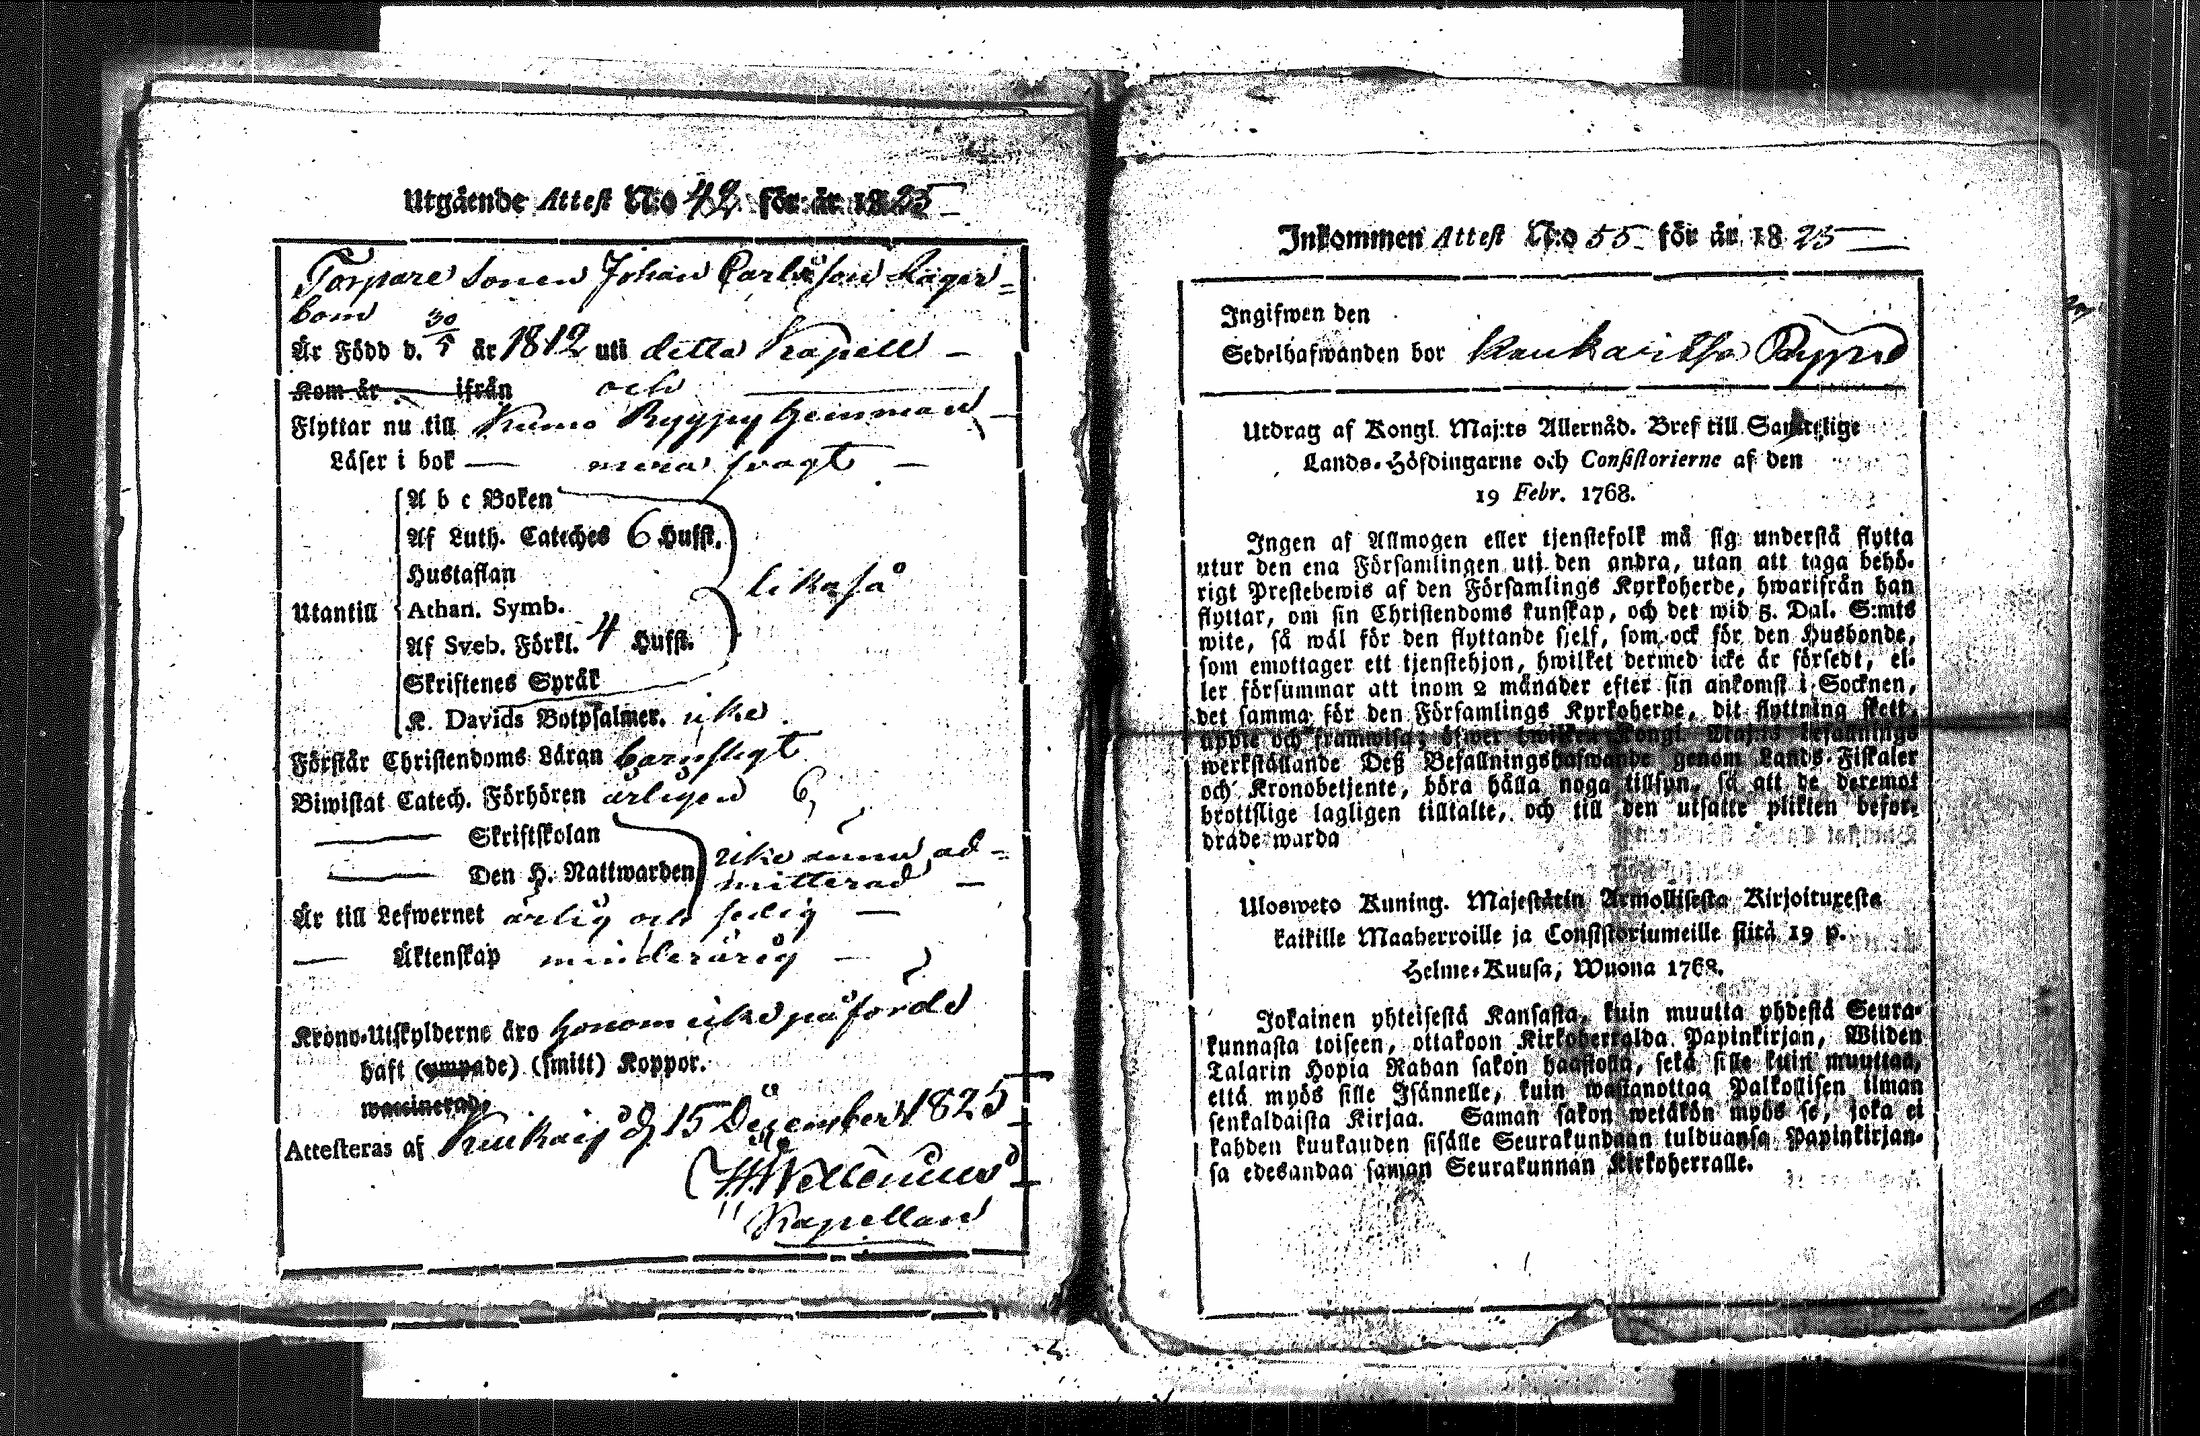 Utgående Attest N:o 42 för år 1825
Torpare Sonen Johan Carlsson Lager=
bom
Är Född d. 30/5 år 1812 uti detta Kapell
Kom år ifrån och
Flyttar nu till Kumo Ryggy hemman
Läser i bok mera svagt
A b c Boken
Af Luth. Cateches 6 Hufst.
Hustaflan
Utantill Athan. Symb. likaså
Af Sveb. Förkl. 4 Hufst.
Skriftenes Språk
K. Davids Botpsalmer. icke
Förstår Christendoms Läran barnsligt
Biwistat Catech. Förhören årligen
Skriftskolan
Den H. Nattwarden icke ännu ad=
mitterad
Är till Lefwernet ärlig och sedig
Äktenskap minderårig
Krono-Utskylderne äro honom icke påförde
haft (ympade) (smitt) Koppor.
waccinerade
Attesteras af d. 15 December 1825
Kapellan
Inkommen Attest N:o 55 för år 1825
Ingifwen den
Sedelhafwanden bor
Utdrag af Kongl. Maj:ts Allernåd. Bref till Samtelige
Lands-Höfdingarne och Consistorierne af den
19 Febr. 1768.
Ingen af Allmogen eller tjenstefolk må sig understå flytta
utur den ena Församlingen uti den andra, utan att taga behö-
rigt Prestebewis af den Församlings Kyrkoherde, hwarifrån han
flyttar, om sin Christendoms kunskap, och det wid 5. Dal. S:mts
wite, så wäl för den flyttande sjelf, som ock för den Husbonde,
som emottager ett tjenstehjon, hwilket dermed icke är försedt, el-
ler försummar att inom 2 månader efter sin ankomst i Socknen,
det samma för den Församlings Kyrkoherde, dit flyttning skett,
uppte och framwisa; öfwer hwilken Kongl. Maj:ts befallnings
werkställande Deß Befallningshafwande genom Lands-Fiskaler
och Kronobetjente, böra hålla noga tillsyn, så att de deremot
brottslige lagligen tilltalte, och till den utsatte plikten befor-
drade warda
Ulosweto Kuning. Majestätin Armollisesta Kirjoituxesta
kaikille Maaherroille ja Consistoriumeille siitä 19 p.
Helme-Kuusa, Wuona 1768.
Jokainen yhteisestä Kansasta, kuin muutta yhdestä Seura-
kunnasta toiseen, ottakoon Kirkoherralda Papinkirjan, Wiiden
Talarin Hopia Rahan sakon haastolla, sekä sille kuin muuttaa,
että myös sille Isännelle, kuin wastanottaa Palkollisen ilman
senkaldaista Kirjaa. Saman sakon wetäkön myös se, joka ei
kahden kuukauden sisälle Seurakundaan tulduansa Papinkirjan-
sa edesandaa saman Seurakunnan Kirkoherralle.